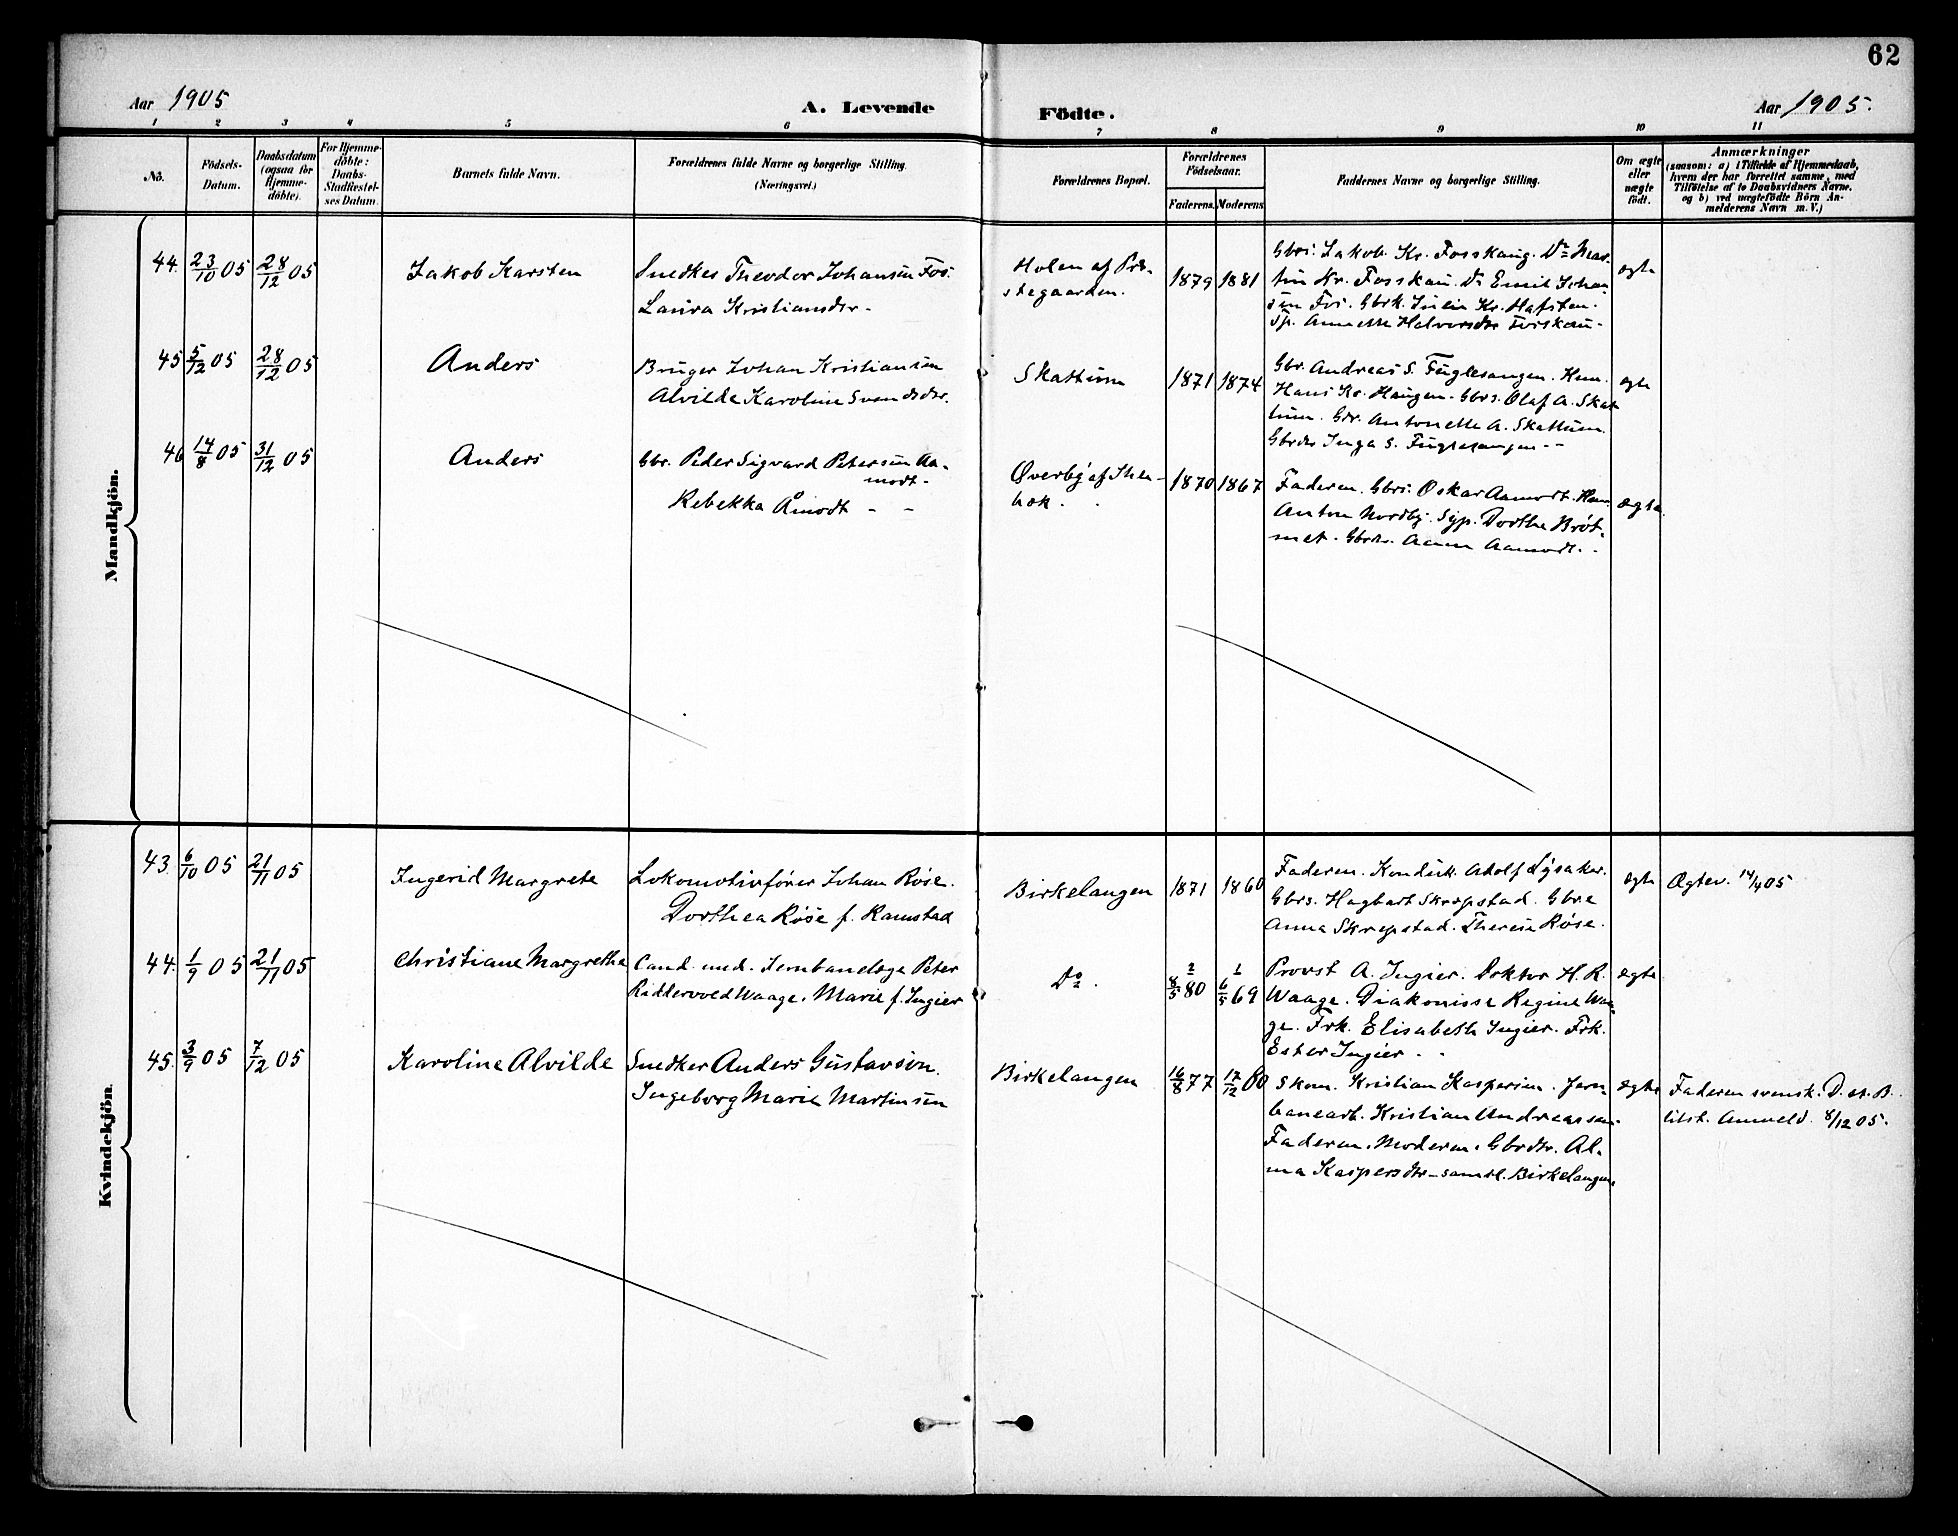 62
Aar 1905
A. Levende
Födte.
Aar 1905.
1 2 3 4 5 6 7 8 9 10 11
No.
Födsels-
Datum.
Daabsdatum
(ogsaa for
Hjemme-
döbte).
For Hjemme-
döbte:
Daabs-
Stadfæstel-
ses Datum.
Barnets fulde Navn.
Forældrenes fulde Navne og borgerlige Stilling.
(Næringsvei.)
Forældrenes Bopæl.
Forældrenes
Födselsaar.
Faderens. Moderens.
Faddernes Navne og borgerlige Stilling.
Om ægte
eller
uægte
födt.
Anmærkninger
(saasom: a) i Tilfælde af Hjemmedaab,
hvem der har forrettet samme, med
Tilföielse af to Daabsvidners Navne,
og b) ved uægtefödte Börn An-
melderens Navn m. V.)
Mandkjön.
44. 23/10 05 28/12 05
Jakob Karsten
Snedker Theodor Johansen Fos.
Laura Kristiansdtr.
Holen af Præ-
stegaarden.
1879 1881
Gbrs. Jakob Kr. Fosskaug. Do Mar-
tin Kr. Fosskau. Do Emil Johan
sen Fos. Gbrk. Julie Kr. Hafsten.
Sp. Annette Halvorsdtr Foskau.
ægte
45 5/12 05 28/12 05
Anders
Bruger Johan Kristiansen
Alvilde Karoline Svendsdtr.
Skattum
1871 1874
Gbr. Andreas S. Fuglesangen. Hum.
Hans Kr. Haugen. Gbrs. Olaf A. Skat
tum. Gdr. Antonette A. Skattum.
Gbrdtr Inga S. Fuglesangen
ægte
46 14/8 05 31/12 05
Anders
Gbr. Peder Sigvard Petersen Aa-
modt.
Rebekka Åmodt
Øverby af
bæk.
1870 1867
Faderen. Gbrs. Oskar Aamodt. Hum
Anton Nordby. Syp. Dorthe Brøt-
met. Gbrdtr. Anna Aamodt.
Ægte.
Kvindekjön.
43. 6/10 05 21/11 05
Ingerid Margrete
Lokomotivfører Johan Røse.
Dorthea Røse f. Ramstad
Birkelangen
1871 1860
Faderen. Konduk. Adolf Lysaker.
Gbrs. Hagbart Skrepstad. Gbre
Anna Skrepstad. Therese Røse.
ægte
Ægtev. 14/4 05
44. 1/9 05 21/11 05
Christiane Margrethe
Cand. med. Jernbanelæge Peter
Riddervold Waage. Marie f. Ingier
Do.
8/5 80 6/5 69
Provst A. Ingier. Doktor H. R.
Waage. Diakonisse Regine Waa-
ge. Frk. Elisabeth Ingier. Frk.
Ester Ingier
ægte
45. 3/9 05 7/12 05
Karoline Alvilde
Snedker Anders Gustavson.
Ingeborg Marie Martinsen
Birkelangen
16/8 77 17/12 80
Skom. Kristian Kaspersen. Jern-
banearb. Kristian Andreassen
Faderen. Moderen. Gbrdtr. Al-
ma Kaspersdtr - samtl. Birkelangen.
ægte
Faderen svensk. D. st. B.
tilst. Anmeld. 8/12 05.